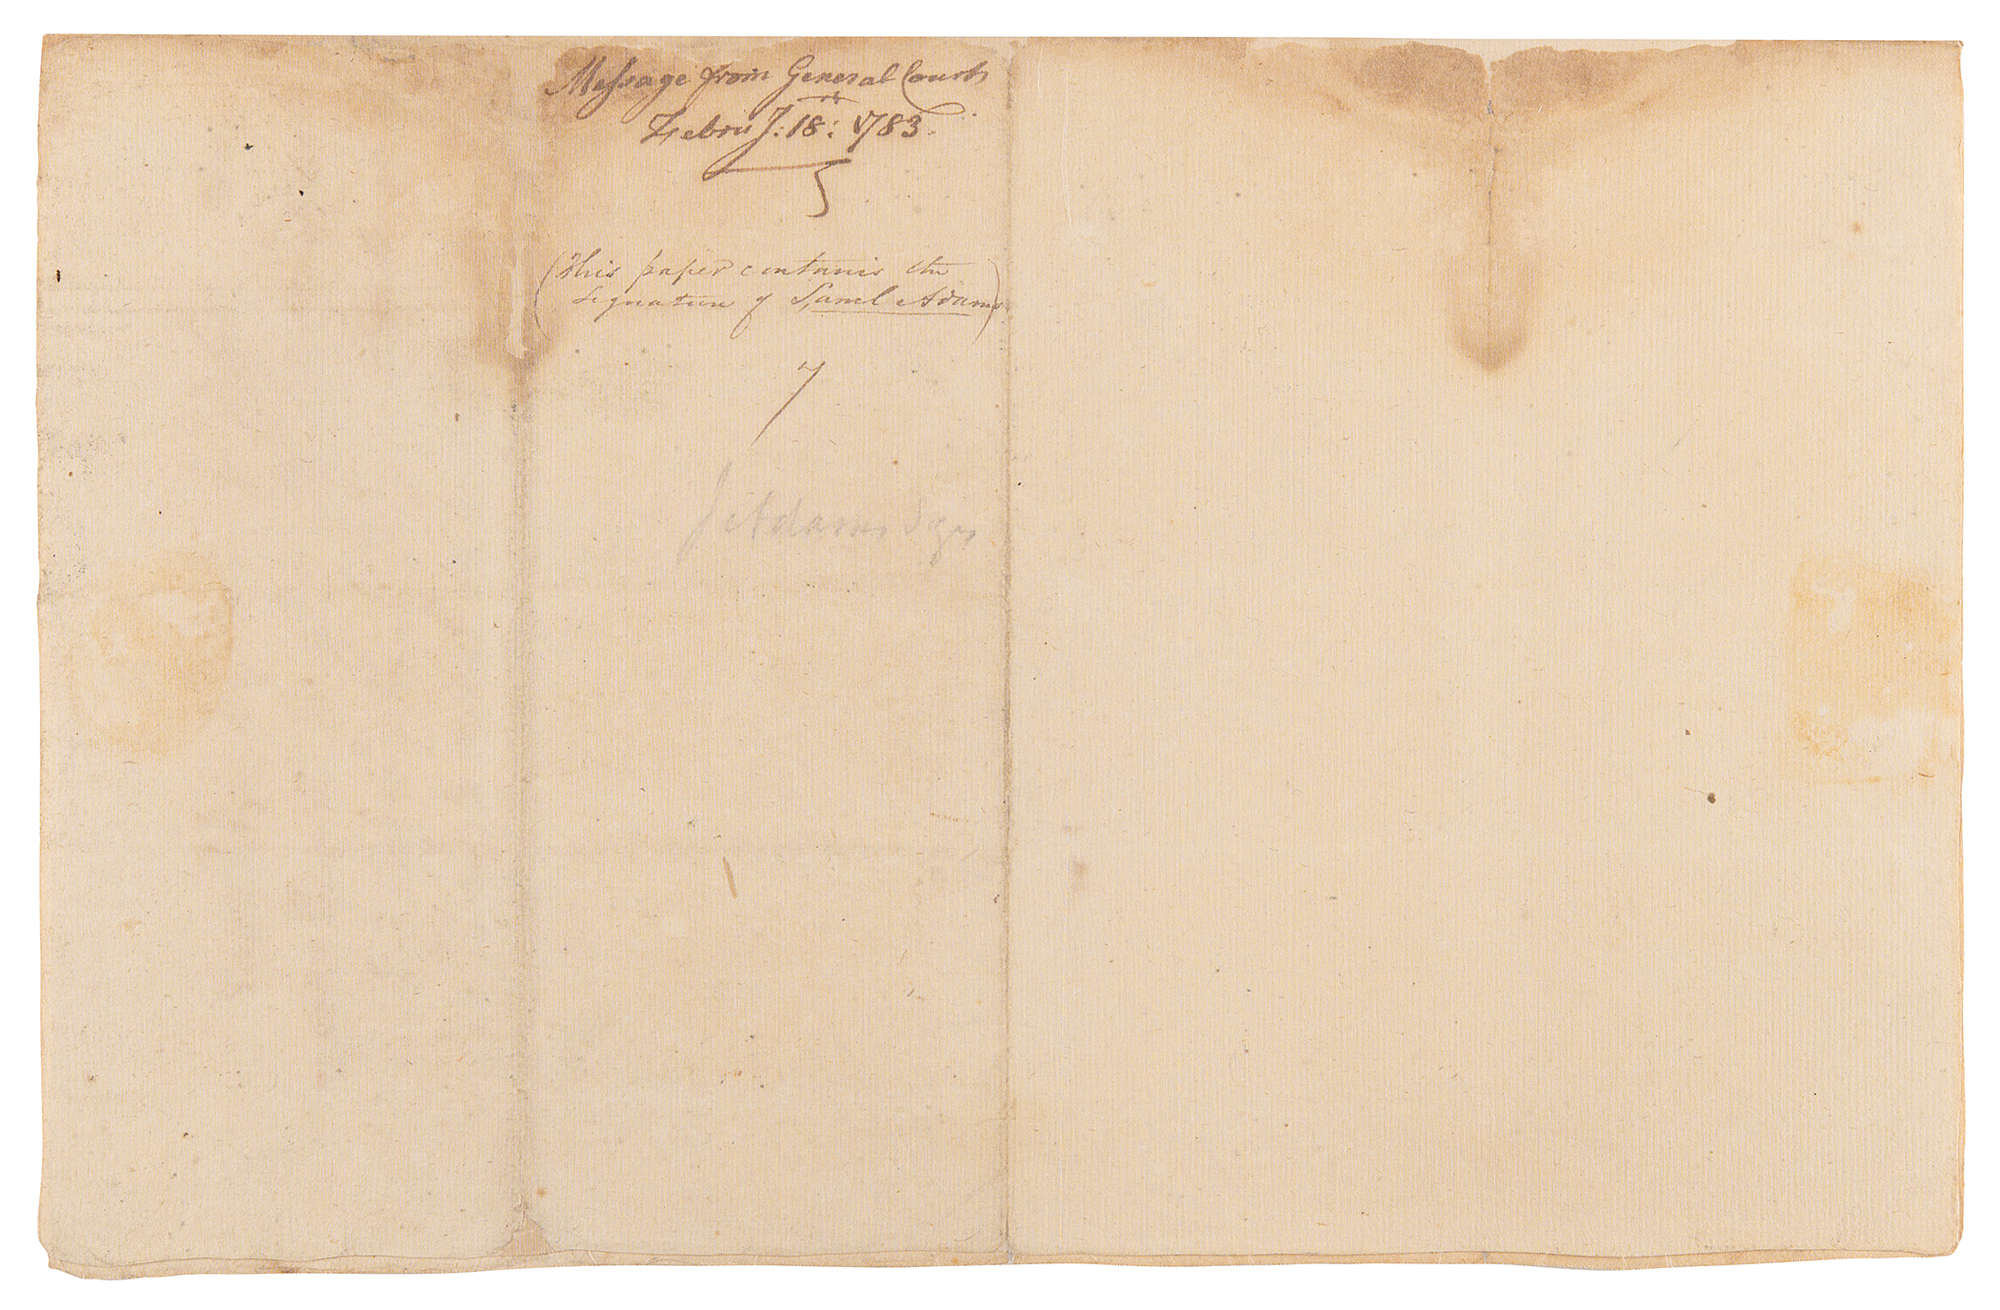 Message from General Court
Febru̅y: 18: 1783.
(This paper contains the
signature of Saml Adams)
7
S Adams Sgr